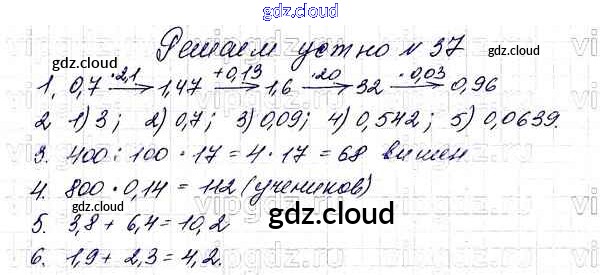 gdz.cloud
gdz.cloud
Решаем устно № 37
1. 0,7 ·2,1 → 1,47 +0,13 → 1,6 ·20 → 32 ·0,03 → 0,96
2 1) 3; 2) 0,7; 3) 0,09; 4) 0,542; 5) 0,0639.
3. 400 : 100 · 17 = 4 · 17 = 68 вишен
4. 800 · 0,14 = 112 (учеников)
gdz.cloud
5. 3,8 + 6,4 = 10,2
6. 1,9 + 2,3 = 4,2.
gdz.cloud